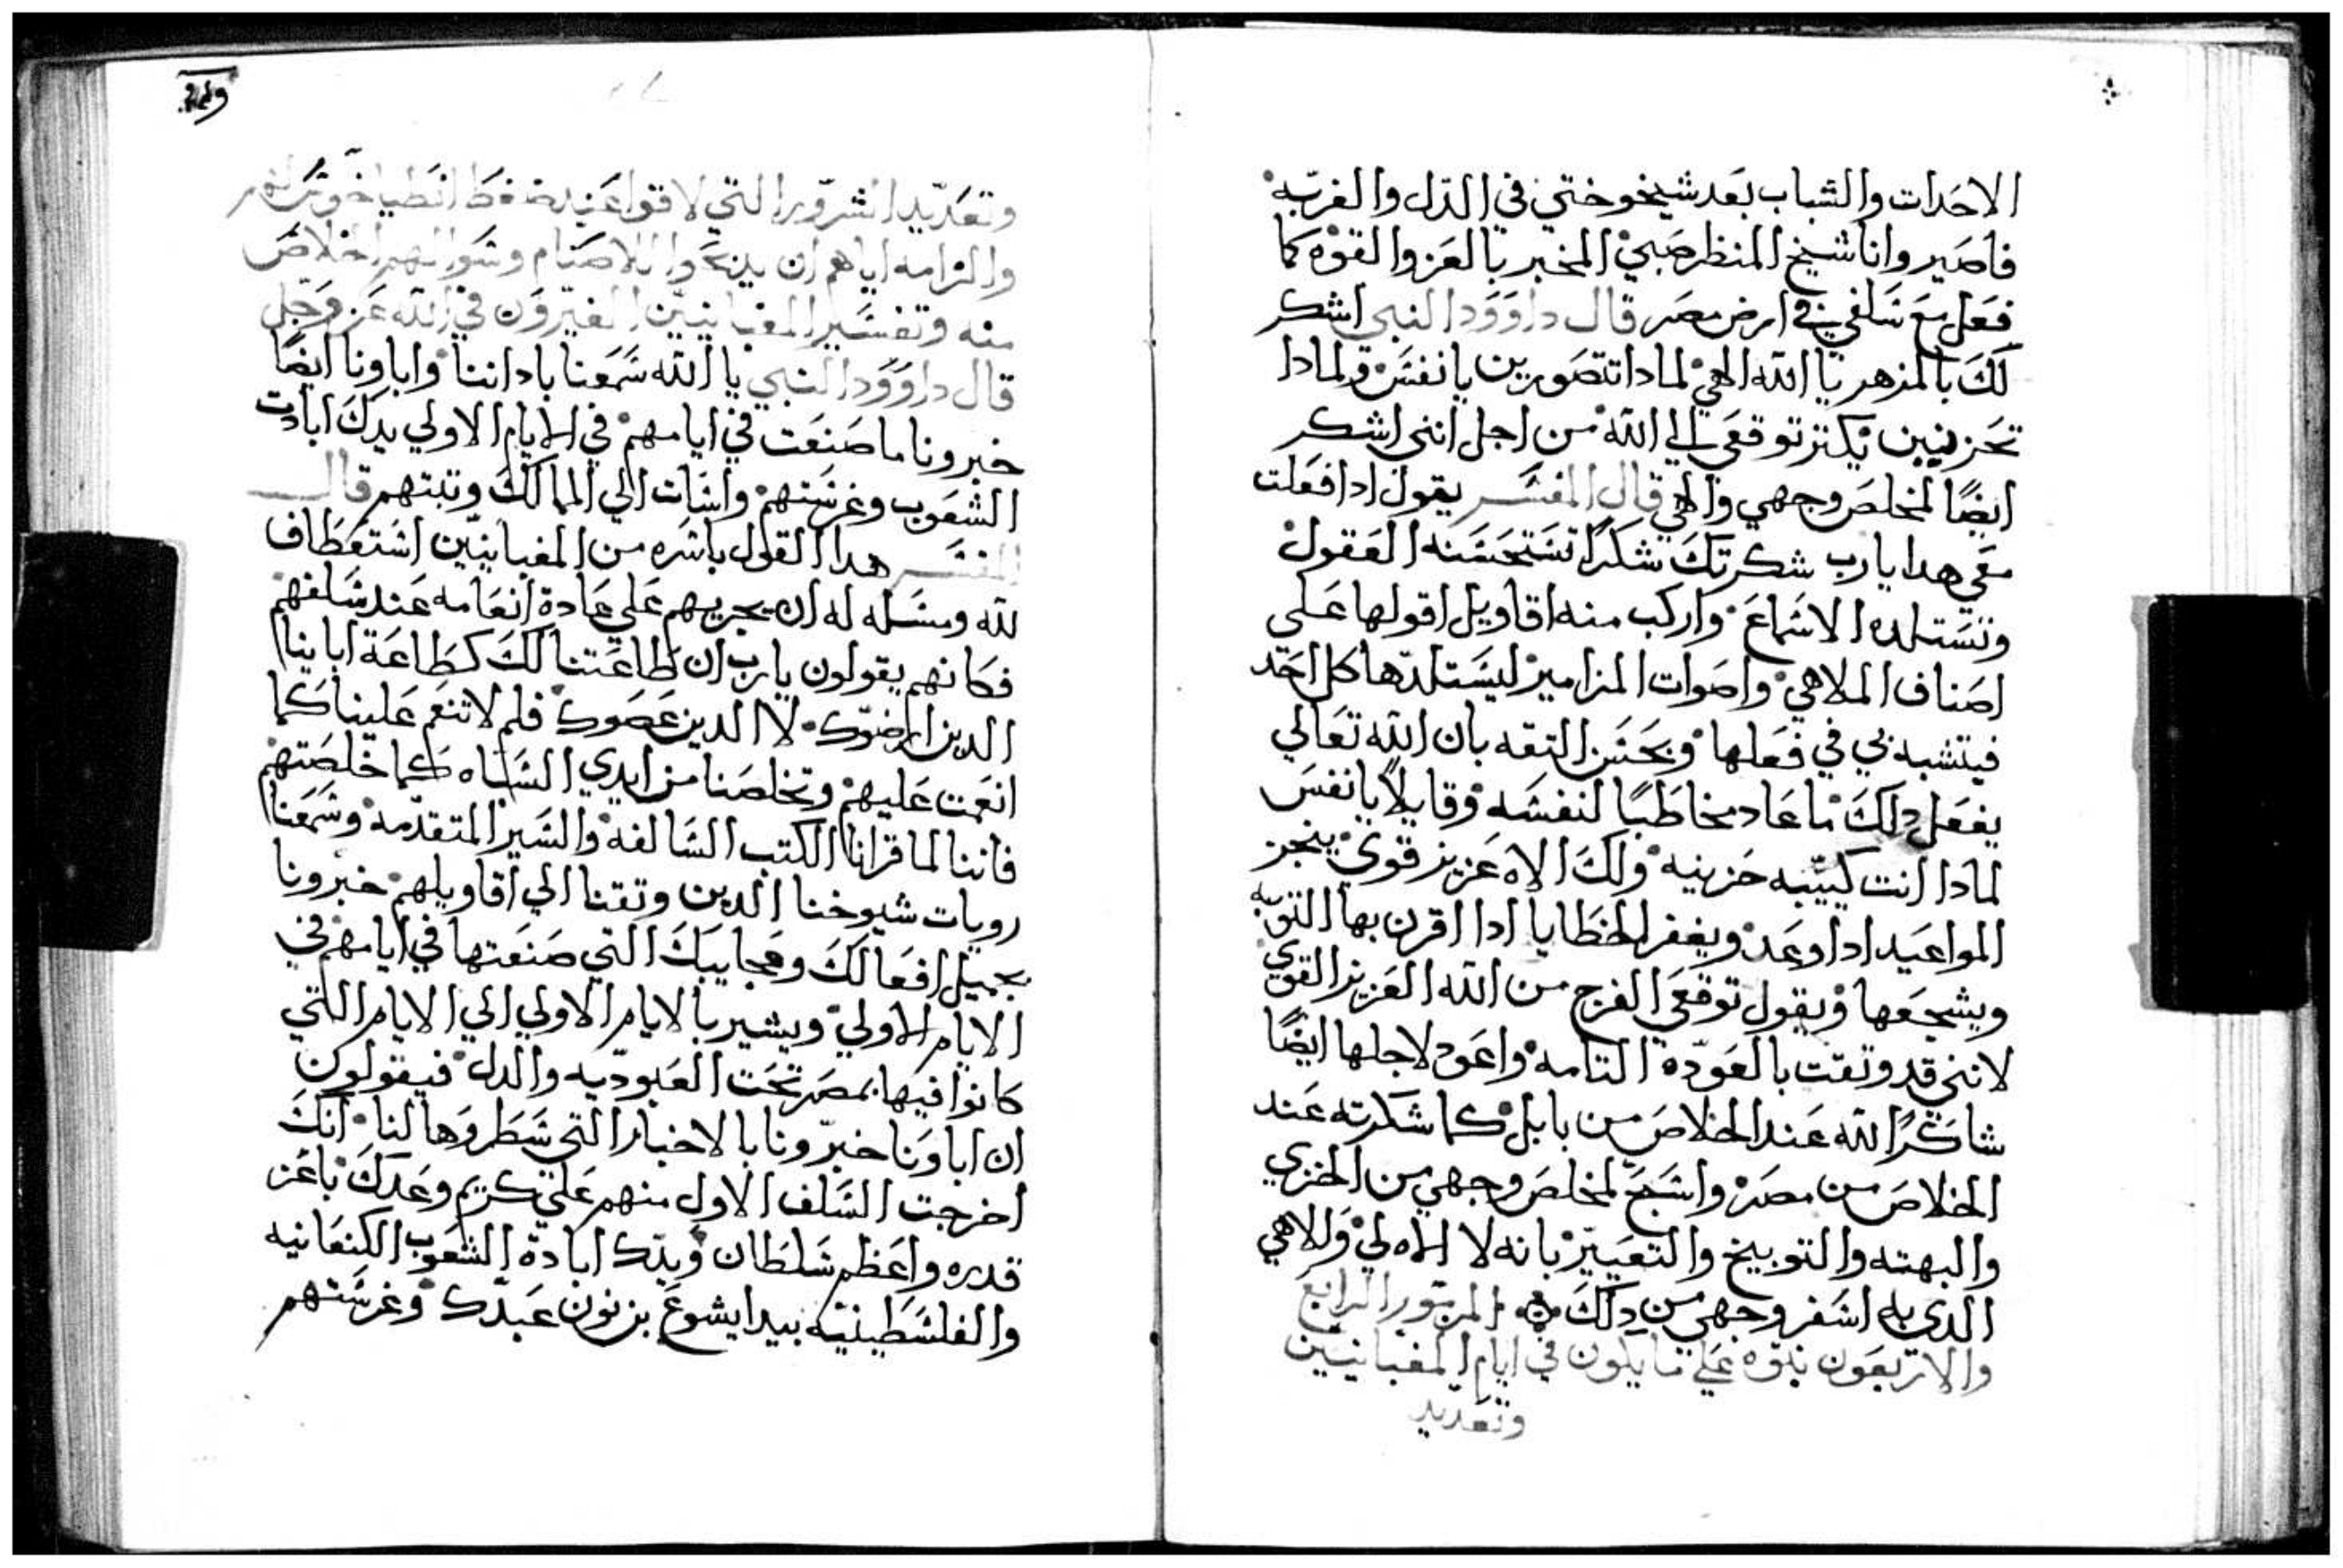 الاحَدات والشباب بعَد شيخوختي في الدّل والغربّه
فاصَير وانا شيخ المنظر صَبيْ المخبر بالعَز والقوْه كما
فعَل مَع سَلفي في ارض مصَر قال داوَوَد النبي اشكر
لَكَ بالمزهر يا اللّه الهيْ لمادا تتصَورين يا نفسَيْ ولمادا
تحَزنيين يْكتر توقعَي الي اللّه من اجل انني اشكر
ايضًا لمخلصَ وجهي والهي قال المفسَر يقول ادا فعَلت
معَي هدا يارب شكرتكَ شكرًا تسَتحَسَنه العَقول
وتسَتلده الاسَماعَ واركب منه اقاويل اقولها عَلي
اصَناف الملاهي واصَوات المزامير ليسَتلدّها كل احَد
فيتشبه بي في فعَلها وبحَسَن التقه بان اللّه تعَالي
يفعَل دلكَ ما عَاد مخاطبًا لنفسَه وقايلًا يا نفسَ
لمادا انت كييّبه حَزينيه ولكَ الاه عَزيز قوي ينجز
المواعَيد ادا وعَد ويغفر الخطايا ادا اقرن بها التوّبه
ويشجعَها ويقول توقعَي الفرج من اللّه العَزيز القوي
لانني قد وتقت بالعَودّه التامه واعَود لاجلها ايضًا
شاكرًا للّه عَند الخلاصَ من بابل كما شكرته عَند
الخلاصَ من مصَر واسَبحَ لمخلصَ وجهي من الخزي
والبهته والتوبيخ والتعَيير بانه لا الاه لي والاهي
الدي به اسَفر وجهي من دلكَ المزمور الرابع
والاربعَون نبوّه عَلي ما يكون في ايام المقبانيين
وتعَديد
وتعَديّد الشرّور التي لاقوا عَند ضغط انطياخوس لهم
والزامه اياهم ان يدبحَوا للاصَنام وسَوالهم الخلاصَ
منه وتفسَير المقبانيّين الغيّروَن في اللّه عَز وَجل
قال داوَوَد النبي يا اللّه سَمعَنا باداننا واباونا ايضًا
خبرونا ما صَنعَت في ايامهمْ في الايام الاولي يدكَ ابادت
الشعَوب وغرسَتهمْ واسَات الي الممالكَ وتبتهم قال
المفسَر هدا القول باسَره من المقبانيّين اسَتعَطاف
للّه ومسَله له ان يجريهم عَلي عَادة انعَامه عَند سَلفهم
فكانهم يقولون يارب ان طاعَتنا لكَ كطاعَة ابايناا
الدين ارضوّك لا الدين عَصَوك فلم لا تنعَم عَلينا كما
انعَمت عَليهمْ وتخلصَنا من ايدي السَباه كما خلصَتهمْ
فاننا لما قرانا الكتب السَالفه والسَير المتقدّمه وسَمعَنا
رويات شيوخنا الدين وتقنا الي اقاويلهمْ خبرونا
بجميل افعَالكَ وعَجايبكَ التي صَنعَتها في ايامهم في
الايام الاولي ويشير بالايام الاولي الي الايام اللتي
كانوا فيها بمصَر تحَت العَبوديّه والدل فيقولون
ان اباونا خبرّونا بالاخبار التي سَطروَها لنا انكَ
اخرجت السَلف الاول منهم عَلي كريم وعَدكَ باعَز
قدره واعَظم سَلطان وبيدّك ابادة الشعَوب الكنعَانيه
والفلسَطينيّه بيد ايشوعَ بن نون عَبدّك وغرسَتهم